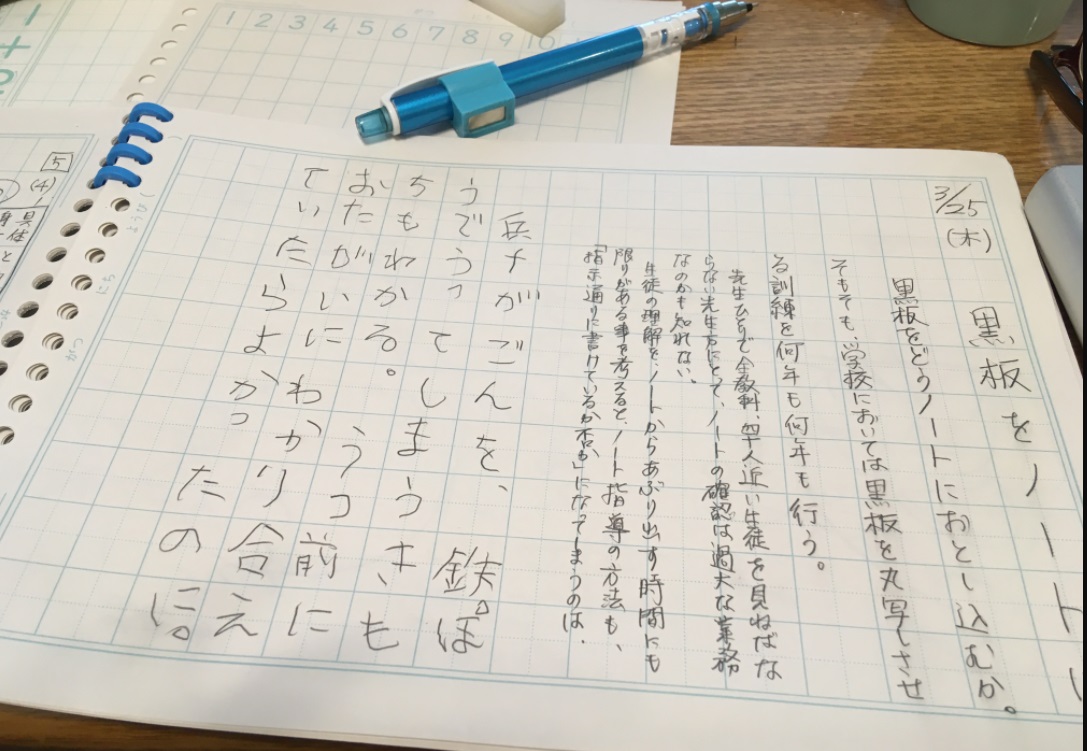 3/25
(木)
黒板をノート
黒板をどうノートにおとし込むか。
そもそも、学校においては黒板を丸写しさせ
る訓練を何年も何年も行う。
先生ひとりで全教科、四十人近い生徒を見ねばな
らない先生方にとって、ノートの確認は過大な業務
なのかも知れない。
生徒の理解を、ノートからあぶり出す時間にも
限りがある事を考えると、ノート指導の方法も、
「指示通りに書けているか否か」になってしまうのは、
兵十がごんを、鉄ぽ
うでうってしまうきも
ちもわかる。うつ前に
おたがいにわかり合え
ていたらよかったのに。
1 2 3 4 5 6 7 8 9 10
1
+
2
5
(4)
具体
と